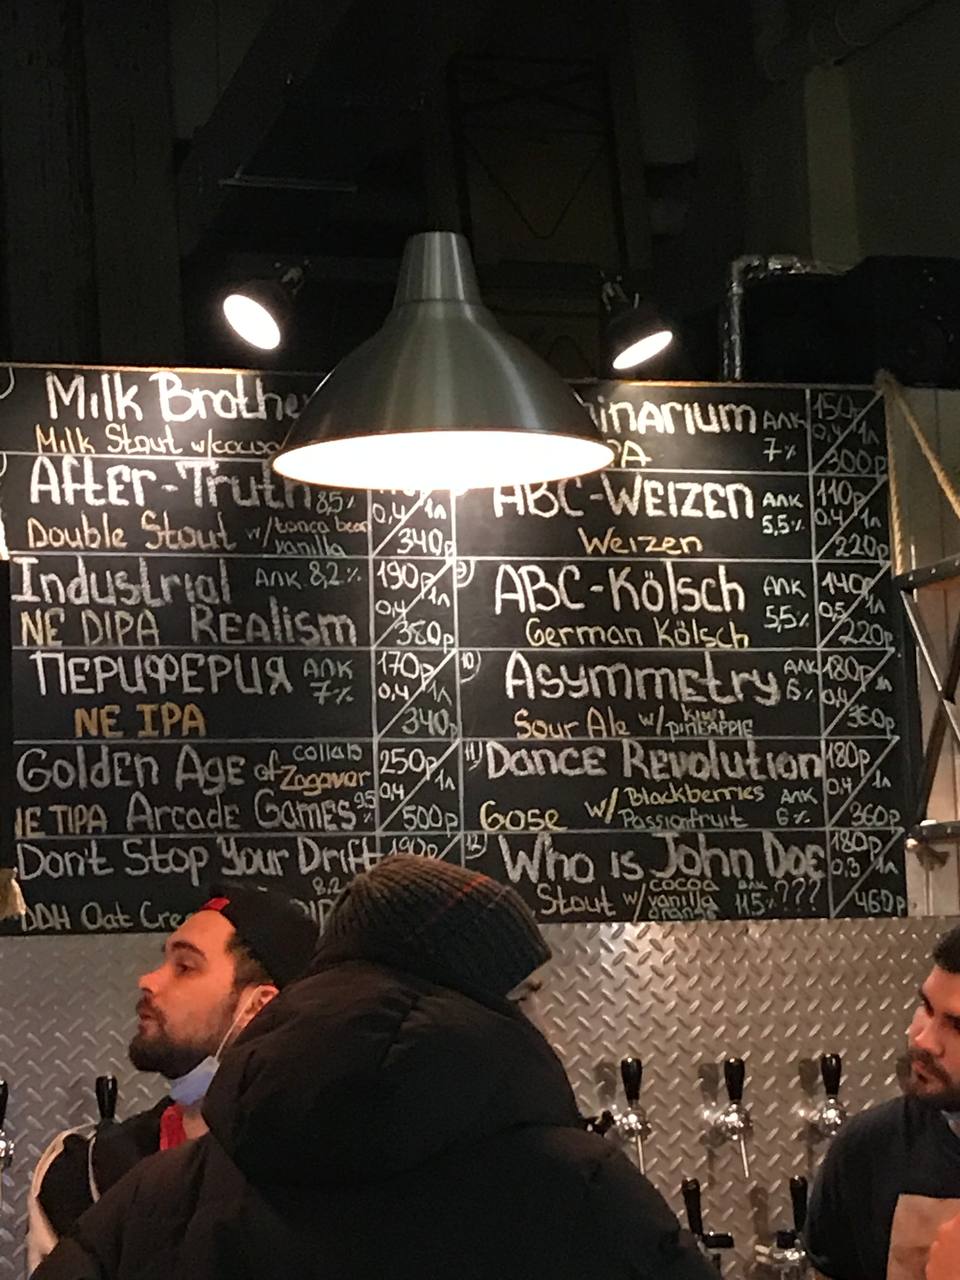 Milk Brothe
Milk Stout w/
AftEr-Truth 8,5%
Double Stout w/tonca bean
vanilla
0,4 1л
340р
Industrial Алк 8,2%
NE DIPA REAlism
190р
0,4 1л
380р
ПЕРИФЕРИЯ Алк
7%
NE IPA
170р
0,4 1л
340р
GoldEn AgE of collab
Zagovor
IE TIPA Arcade GamEs 9,5%
250р
0,4 1л
500р
Don't Stop Your Drift
8,2
DDH Oat Cre
190р
inARium Алк
7%
PA
150р
0,4 1л
300р
ABC-WEIZEN Алк
5,5%
Weizen
110р
0,4 1л
220р
9)
ABC-Kölsch Алк
5,5%
German Kölsch
140р
0,5 1л
220р
10)
AsymmEtry Алк
6%
Sour Ale w/ kiwi
pinEAPPLE
180р
0,4 1л
360р
11)
DancE REvolution
Gose w/ Blackberries
Passionfruit
Алк
6%
180р
0,4 1л
360р
12)
Who is John DoE
Stout w/ cocoa
vanilla
orange
Алк
11,5% ???
180р
0,3 1л
460р